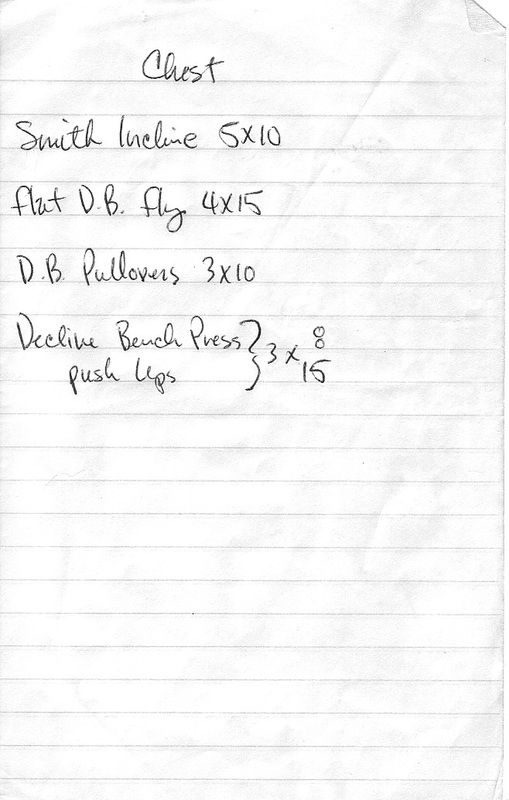 Chest
Smith Incline 5x10
flat D.B. fly 4x15
D.B. Pullovers 3x10
Decline Bench Press } 3 x 8
push Ups } 15